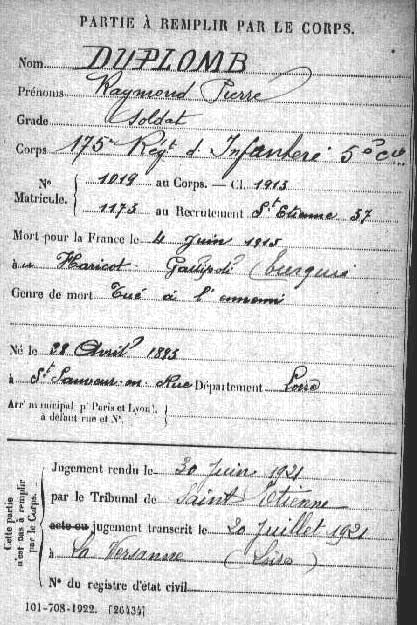 PARTIE À REMPLIR PAR LE CORPS.
Nom DUPLOMB
Prénoms Raymond Pierre
Grade Soldat
Corps 175e Régt d'Infanterie 5e Cie
N° 1019 au Corps. — Cl. 1913
Matricule. 1173 au Recrutement St Etienne 37
Mort pour la France le 4 Juin 1915
à Haricot Gallipoli (Turquie
Genre de mort Tué à l'ennemi
Né le 28 Avril 1893
à St Sauveur-en-Rue Département Loire
Arrt municipal pr Paris et Lyon,
à défaut rue et N°.
Cette partie
n'est pas à remplir
par le Corps.
Jugement rendu le 20 Juin 1921
par le Tribunal de Saint Etienne
acte ou jugement transcrit le 20 Juillet 1921
à La Versanne (Loire)
N° du registre d'état civil
101-708-1922. [26434]